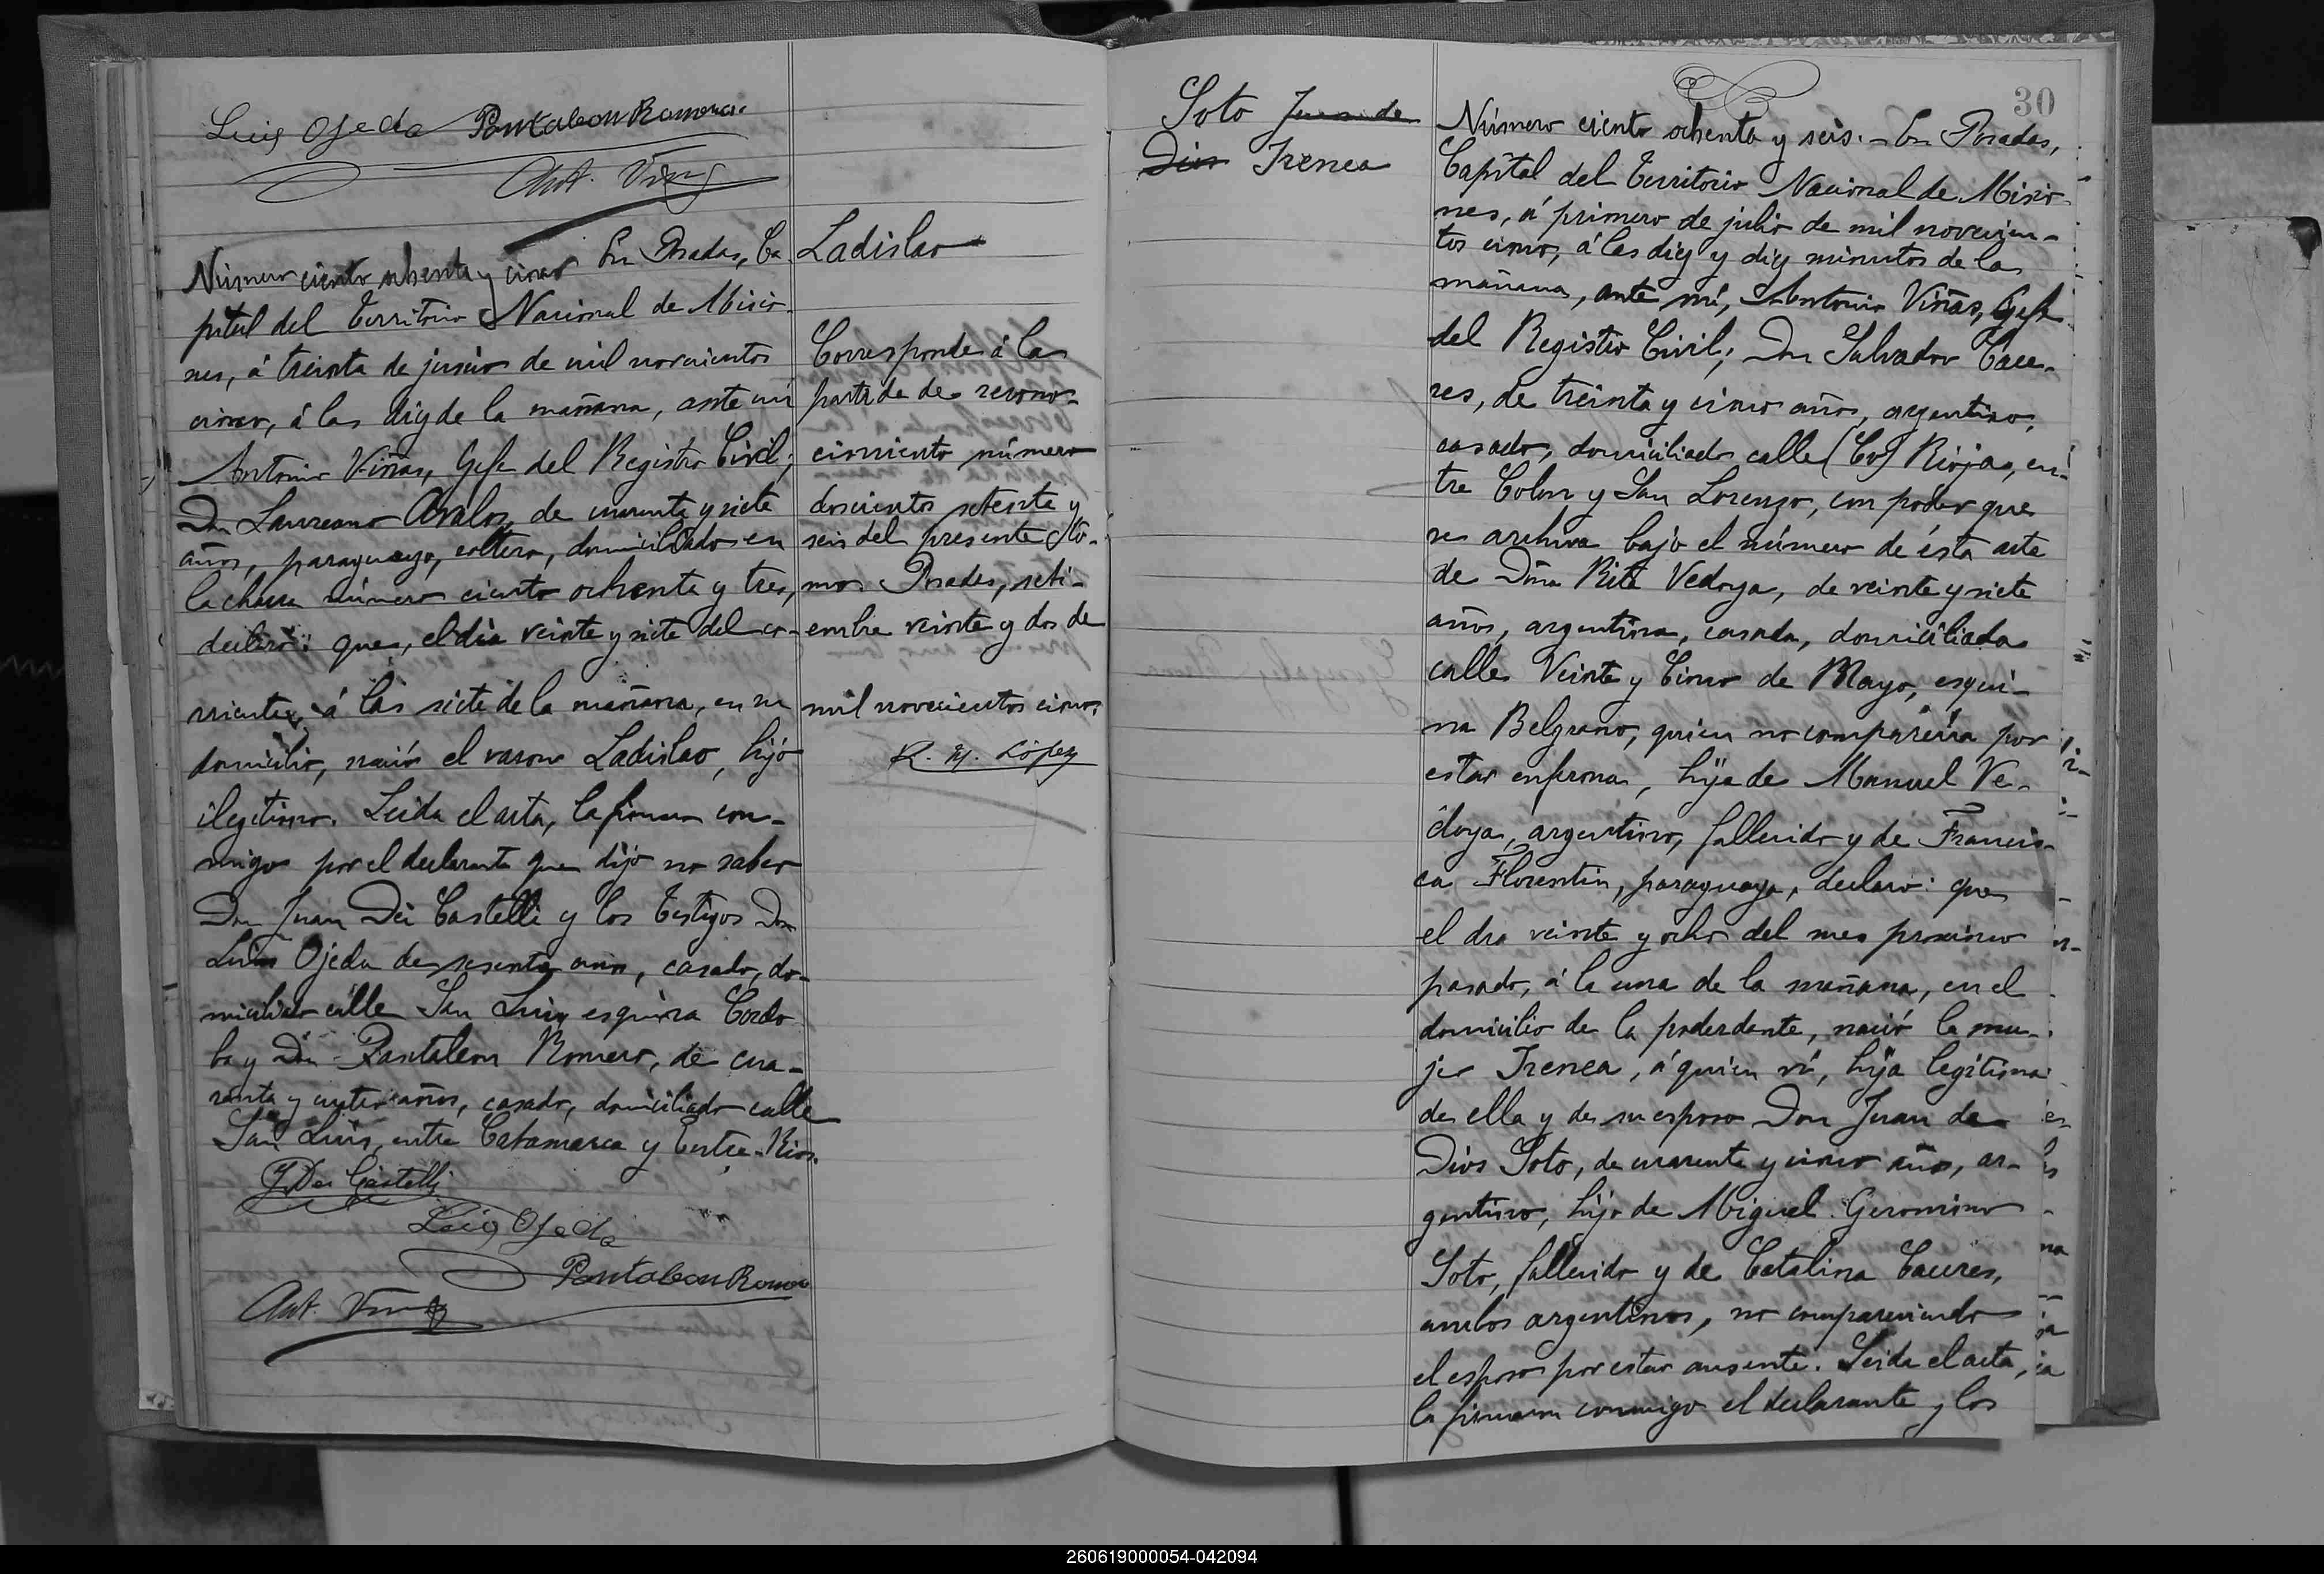 Luis Ojeda Pantaleon Romero
Ant. Viñas
Número ciento ochenta y cinco En Posadas, Ca-
pital del Territorio Nacional de Misio-
nes, á treinta de junio de mil novecientos
cinco, á las diez de la mañana, ante mí
Antonio Viñas, Gefe del Registro Civil;
Don Laureano Avalos, de cuarenta y siete
años, paraguayo, soltero, domiciliado en
la chacra número ciento ochenta y tres,
declaró: que, el día veinte y siete del co-
rriente, á las siete de la mañana, en su
domicilio, nació el varon Ladislao, hijo
ilegitimo. Leida el acta, la firman con-
migo por el declarante que dijo no saber
Don Juan Dei Castelli y los testigos Don
Luis Ojeda de sesenta años, casado, do-
miciliado calle San Luis esquina Cordo-
ba y Don Pantaleon Romero, de cua-
renta y años, casado, domiciliado calle
San Luis, entre Catamarca y Entre-Rios.
J Dei Castelli
Luis Ojeda
Pantaleon Romero
Ant. Viñas
Ladislao
Corresponde á la
partida de recono-
cimiento número
doscientos setenta y
seis del presente to-
mo. Posadas, seti-
embre veinte y dos de
mil novecientos cinco.
R. M. López
30
Soto Juan de
Dios Irenea
Número ciento ochenta y seis.- En Posadas,
Capital del Territorio Nacional de Misio-
nes, á primero de julio de mil novecien-
tos cinco, á las diez y diez minutos de la
mañana, ante mí, Antonio Viñas, Gefe
del Registro Civil; Don Salvador Cace-
res, de treinta y cinco años, argentino,
casado, domiciliado calle Rioja, en-
tre Colon y San Lorenzo, con poder que
se archiva bajo el número de ésta acta
de Doña Rita Vedoya, de veinte y siete
años, argentina, casada, domiciliada
calle Veinte y Cinco de Mayo, esqui-
na Belgrano, quien no comparecía por
estar enferma, hija de Manuel Ve-
doya, argentino, fallecido y de Francis-
ca Florentin, paraguaya, declaró: que
el dia veinte y ocho del mes proximo
pasado, á la una de la mañana, en el
domicilio de la poderdante, nació la mu-
jer Irenea, á quien ví, hija legitima
de ella y de su esposo Don Juan de
Dios Soto, de cuarenta y cinco años, ar-
gentino, hijo de Miguel Geronimo
Soto, fallecido y de Catalina Caceres,
ambos argentinos, no compareciendo
el esposo por estar ausente. Leida el acta,
la firman conmigo el declarante y los
260619000054-042094